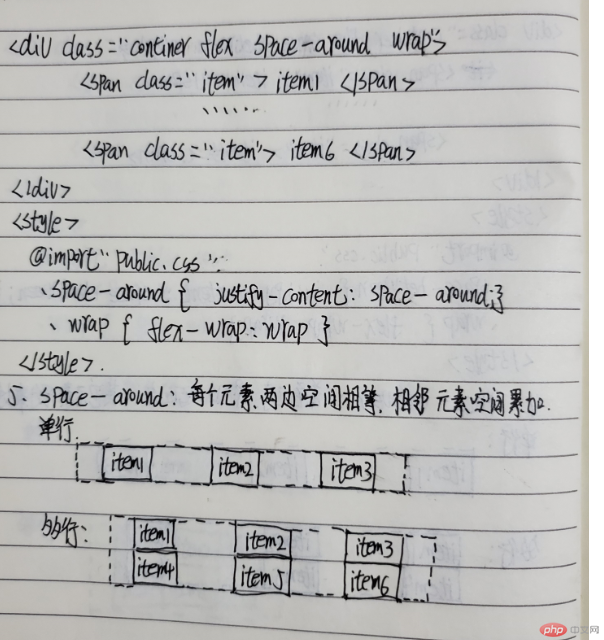 <div class="continer flex space-around wrap">
<span class="item"> item1 </span>
......
<span class="item"> item6 </span>
</div>
<style>
@import "public.css";
.space-around { justify-content: space-around; }
.wrap { flex-wrap: wrap }
</style>.
5. space-around: 每个元素两边空间相等, 相邻元素空间累加.
单行
item1 item2 item3
多行:
item1 item2 item3
item4 item5 item6
php 中文网